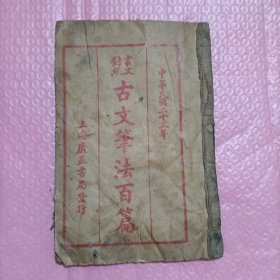 中華民國二十二年
言文
對照
古文筆法百篇
上海廣益書局發行